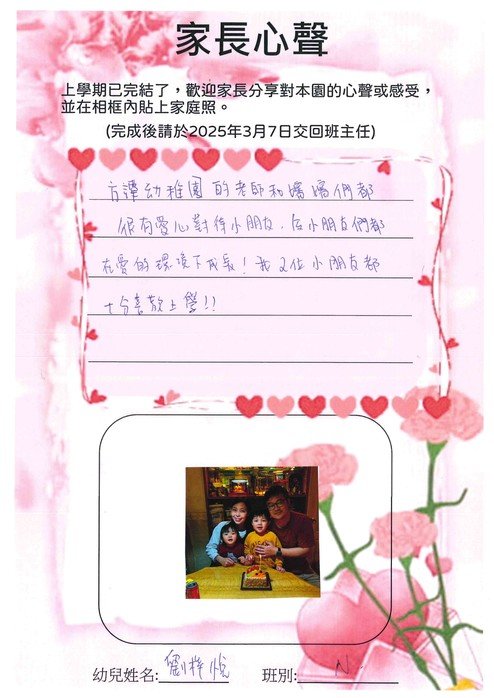 家長心聲
上學期已完結了，歡迎家長分享對本園的心聲或感受，
並在相框內貼上家庭照。
(完成後請於2025年3月7日交回班主任)
方譚幼稚園的老師和嬸嬸們都
很有愛心對待小朋友，令小朋友們都
在愛的環境下成長！我2位小朋友都
十分喜歡上學!!
幼兒姓名: 劉梓悅
班別: N